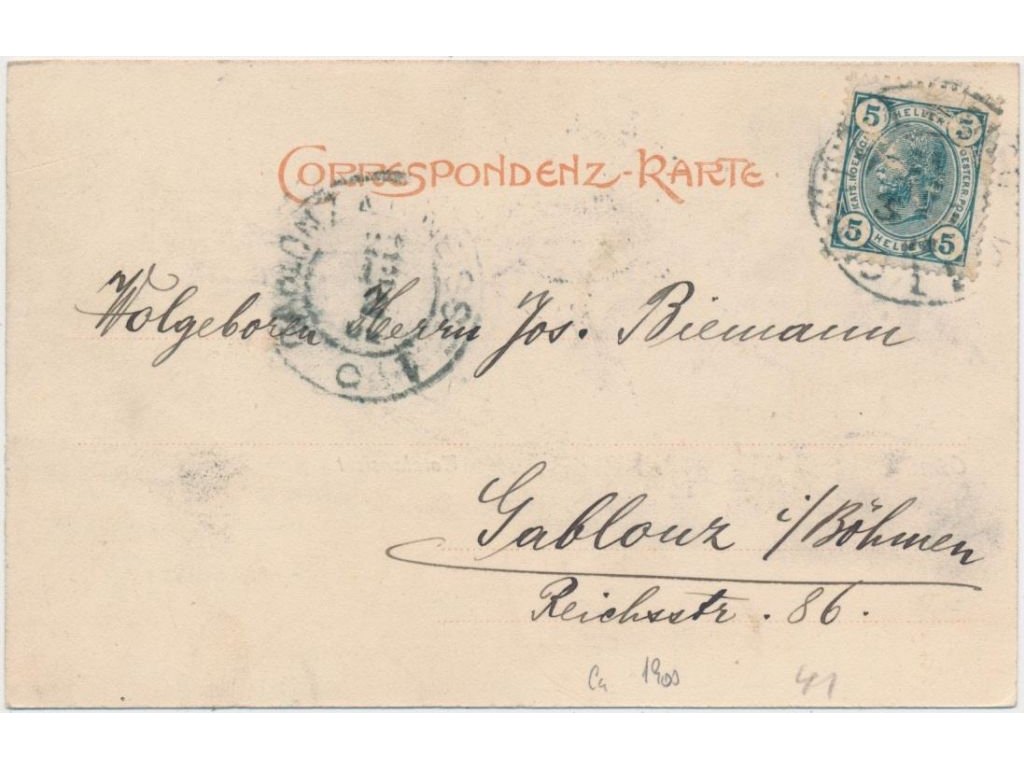 CORRESPONDENZ-KARTE
5 HELLER 5
KAIS. KOENIGL. OESTERR. POST
5 HELLER 5
Wolgeboren Herrn Jos. Biemann
Gablonz i/Böhmen
Reichsstr. 86.
Ca 1900 41